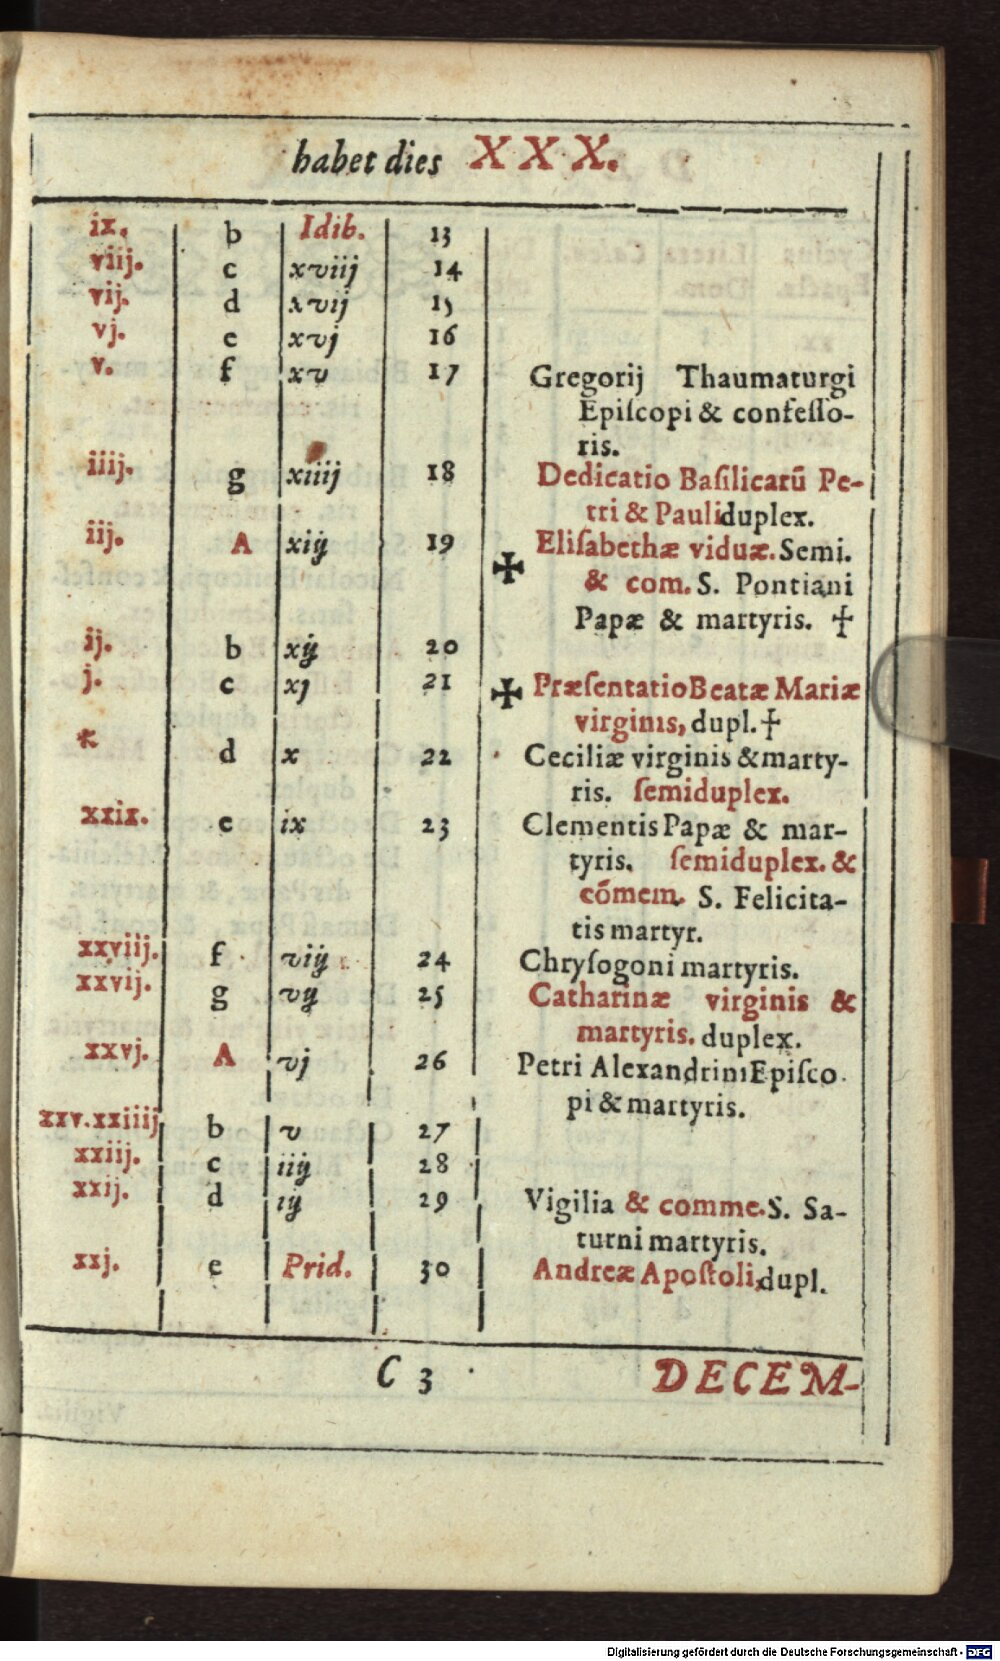 habet dies XXX.
ix. b Idib. 13
viij. c xviij 14
vij. d xvij 15
vj. e xvj 16
v. f xv 17 Gregorij Thaumaturgi
Epiſcopi & confeſſo-
ris.
iiij. g xiiij 18 Dedicatio Baſilicarū Pe-
tri & Pauli duplex.
iij. A xiij 19 ✠ Eliſabethæ viduæ. Semi.
& com. S. Pontiani
Papæ & martyris. ✢
ij. b xij 20
j. c xj 21 ✠ Præſentatio Beatæ Mariæ
virginis, dupl. ✢
* d x 22 Ceciliæ virginis & marty-
ris. ſemiduplex.
xxix. e ix 23 Clementis Papæ & mar-
tyris. ſemiduplex. &
cōmem. S. Felicita-
tis martyr.
xxviij. f viij 24 Chryſogoni martyris.
xxvij. g vij 25 Catharinæ virginis &
martyris. duplex.
xxvj. A vj 26 Petri Alexandrini Epiſco
pi & martyris.
xxv.xxiiij b v 27
xxiij. c iiij 28
xxij. d iij 29 Vigilia & comme. S. Sa-
turni martyris.
xxj. e Prid. 30 Andreæ Apoſtoli, dupl.
C 3 DECEM-
Digitalisierung gefördert durch die Deutsche Forschungsgemeinschaft - DFG